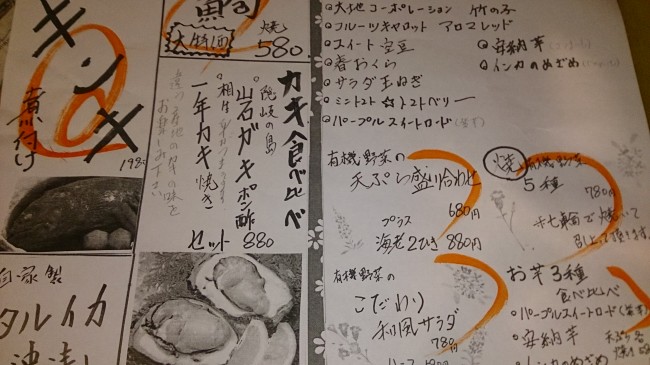 キンキ
煮付け
自家製
タルイカ
大特価
焼
580
カキ食べ比べ
隠岐の島
山石ガキポン酢
相生
一年カキ焼き
違う産地のカキの味を
お楽しみ下さい
セット 880
大地コーポレーション 竹の子
フルーツキャロット アロマレッド
スイート空豆
春おくら
サラダ玉ねぎ
ミニトマト ☆トマトベリー
パープルスイートロード
安納芋
インカのめざめ
有機野菜の
天ぷら盛り合わせ
680円
プラス
海老2ひき 880円
焼 有機野菜
5種
780円
※七輪で焼いて
召し上って頂きます。
有機野菜の
こだわり
和風サラダ
780円
お芋3種
食べ比べ
・パープルスイートロード
・安納芋
・インカのめざめ